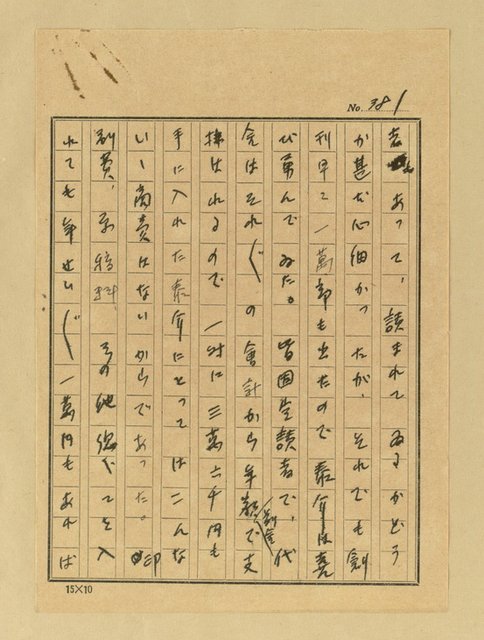 No. 381
あって、讀まれてゐるかどう
か甚だ心細かったが、それでも創
刊早々一萬部も出たので泰介は喜
び勇んでゐた。皆固定讀者で、代
金はそれ〴〵の會計から年額前金で支
拂はれるので一時に三萬六千円も
手に入れた泰介にとってはこんな
いゝ商賣はないからであった。印
刷費、原稿料その他總べてを入
れても年せい〴〵一萬円もあれば
15×10